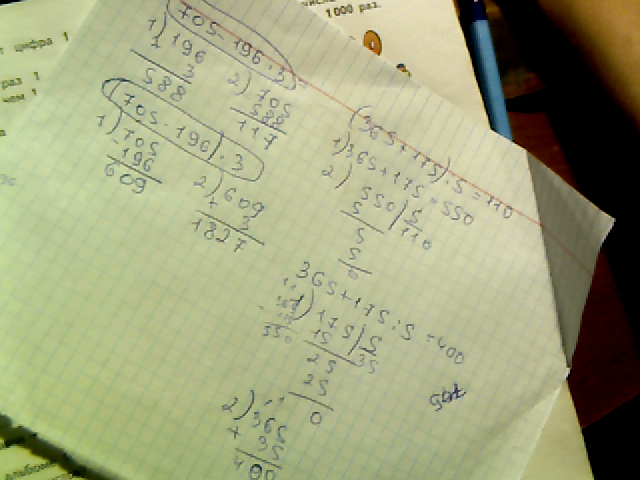 1000 раз.
цифра 1
раз 1
705 - 196 · 3
1) 196
3
588
2) 705
588
117
(705 - 196) · 3
1) 705
- 196
609
2) 609
3
1827
(365 + 175) : 5 = 110
1) 365 + 175 = 550
2) 550 | 5
5 110
5
5
0
365 + 175 : 5 = 400
1) 175 | 5
15 35
25
25
0
550
2) 365
+ 35
400
705